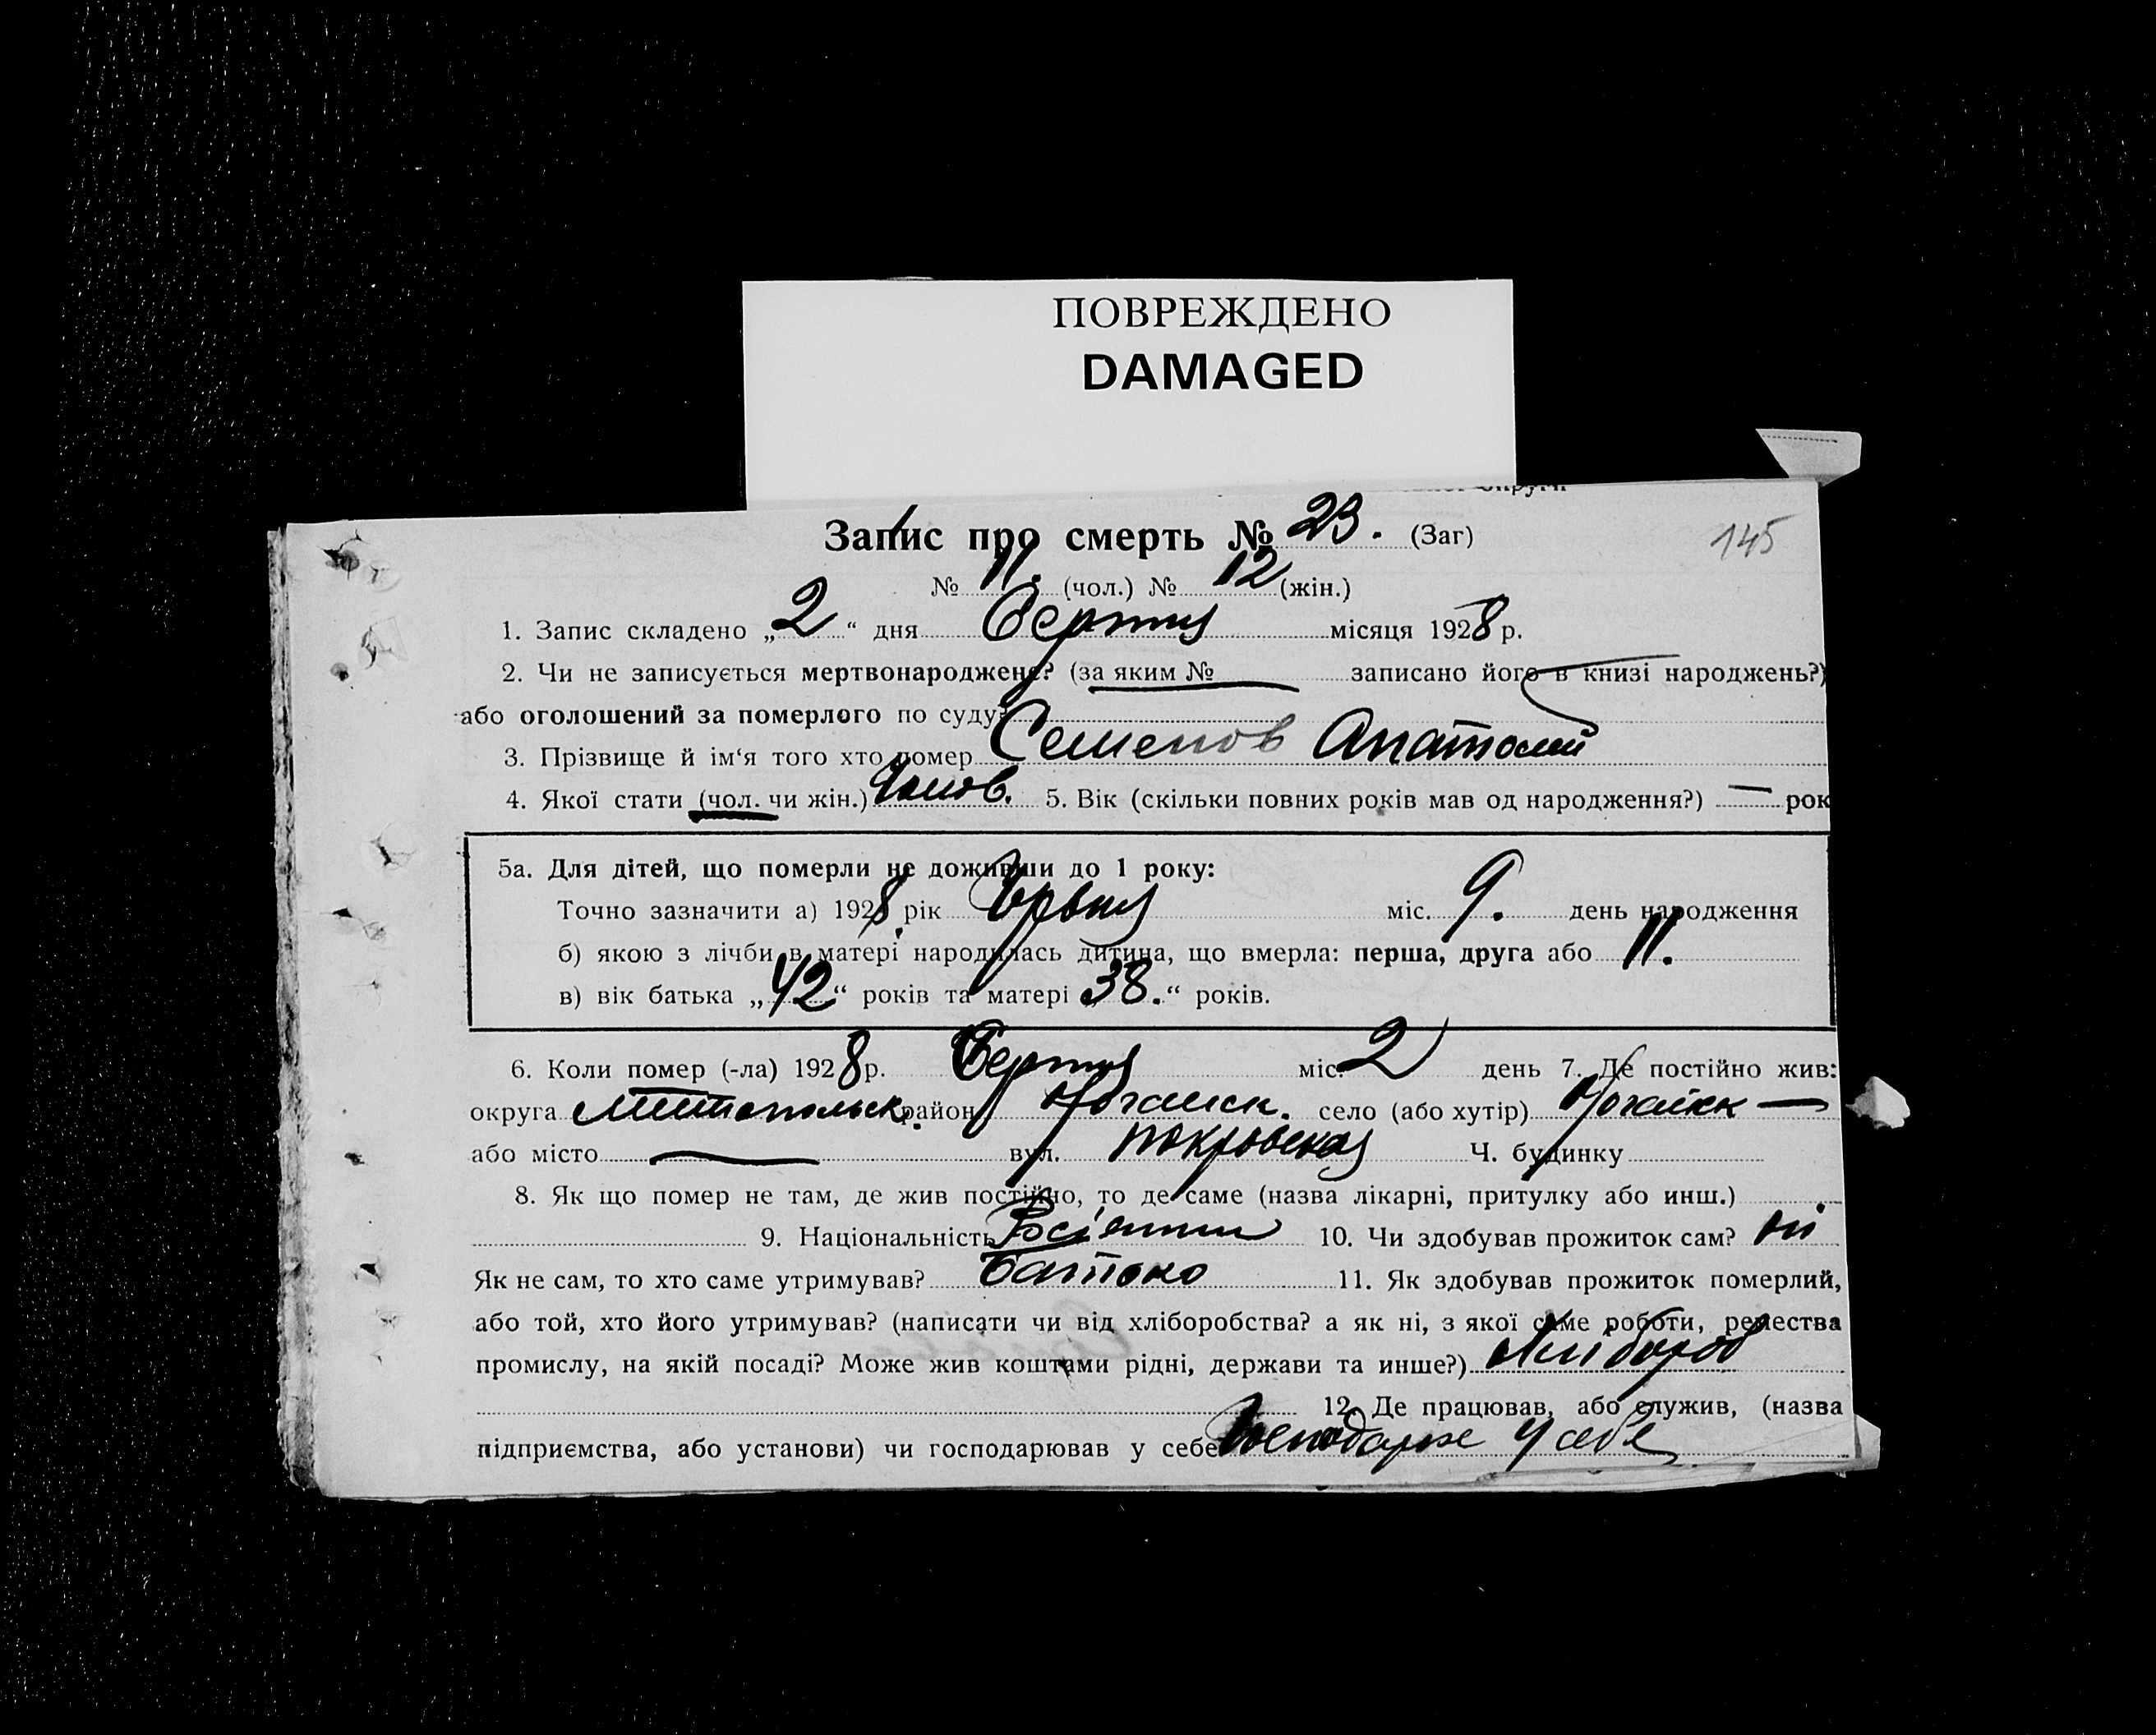 ПОВРЕЖДЕНО
DAMAGED
Запис про смерть № 23. (Заг)
145
№ 11. (чол.) № 12 (жін.)
1. Запис складено „2“ дня Серпня місяця 1928 р.
2. Чи не записується мертвонароджене? (за яким № записано його в книзі народжень?)
або оголошений за померлого по суду?
3. Прізвище й ім‘я того хто помер Семенов Анатолий
4. Якої стати (чол. чи жін.) Чолов. 5. Вік (скільки повних років мав од народження?) — рок
5а. Для дітей, що померли не доживши до 1 року:
Точно зазначити а) 1928 рік міс. 9. день народження
б) якою з лічби в матері народилась дитина, що вмерла: перша, друга або 11.
в) вік батька „42“ років та матері „38.“ років.
6. Коли помер (-ла) 1928 р. Серпня міс. 2 день 7. Де постійно жив:
округа район Ногайск. село (або хутір) Ногайск —
або місто — вул. Покровская Ч. будинку
8. Як що помер не там, де жив постійно, то де саме (назва лікарні, притулку або инш.)
9. Національність 10. Чи здобував прожиток сам? ні
Як не сам, то хто саме утримував? Батько 11. Як здобував прожиток померлий,
або той, хто його утримував? (написати чи від хліборобства? а як ні, з якої саме роботи, ремества
промислу, на якій посаді? Може жив коштами рідні, держави та инше?)
12. Де працював, або служив, (назва
підприємства, або установи) чи господарював у себе у себе